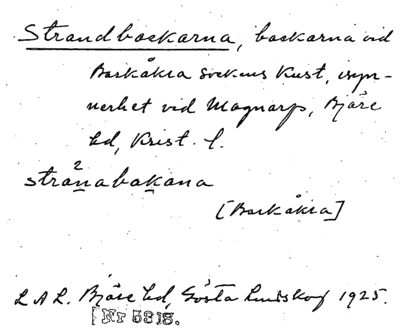 Strandbackarna, backarna vid
Barkåkra sockens kust, isyn-
nerhet vid Magnarp, Bjäre
hd, Krist. l.
stra2nabakana
[Barkåkra]
L A L. Bjäre hd, Gösta Lindskog 1925.
[Nr 5818.